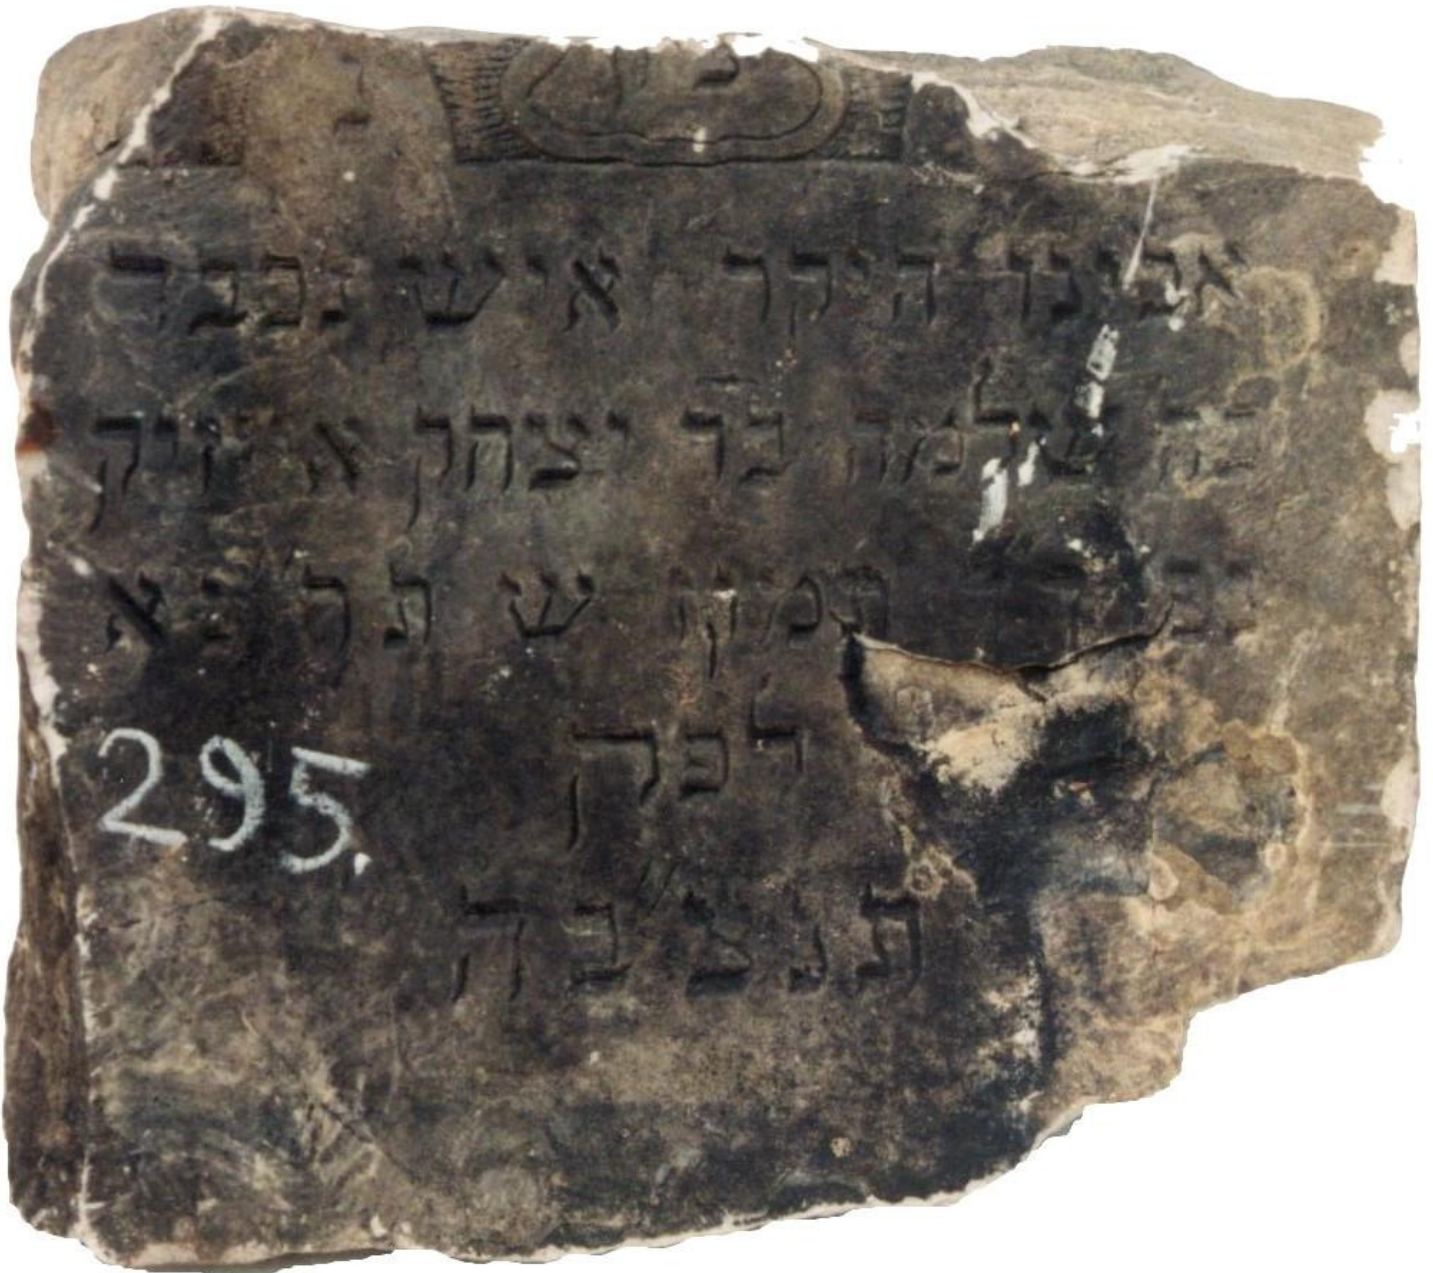 אבינו היקר איש נכבד
כה שלמה בר יצחק אייזיק
תמוז ש תר נא
לפק
תנצבה
295.